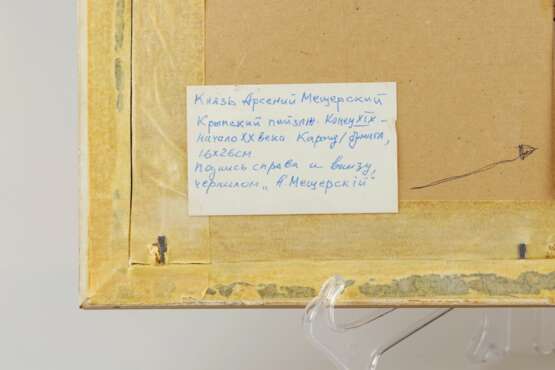 Князь Арсений Мещерский
Крымский пейзаж. Конец XIX -
начало XX века Каранд/бумага,
16x26см
Подпись справа и внизу,
чернилом „А. Мещерскій"